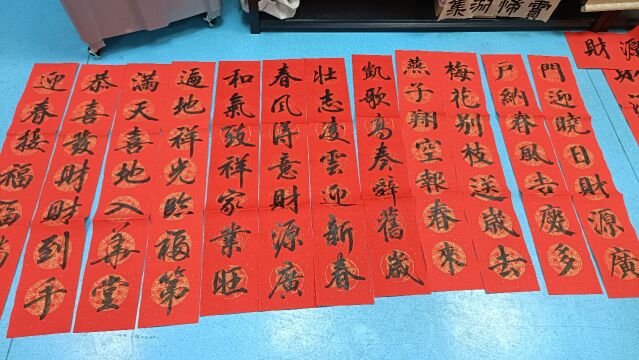 財源
門迎曉日財源廣
戶納春風吉慶多
梅花別枝送歲去
燕子翔空報春來
凱歌高奏辭舊歲
壯志凌雲迎新春
春風得意財源廣
和氣致祥家業旺
遍地祥光臨福第
滿天喜地入華堂
恭喜發財財到手
迎春接福福滿